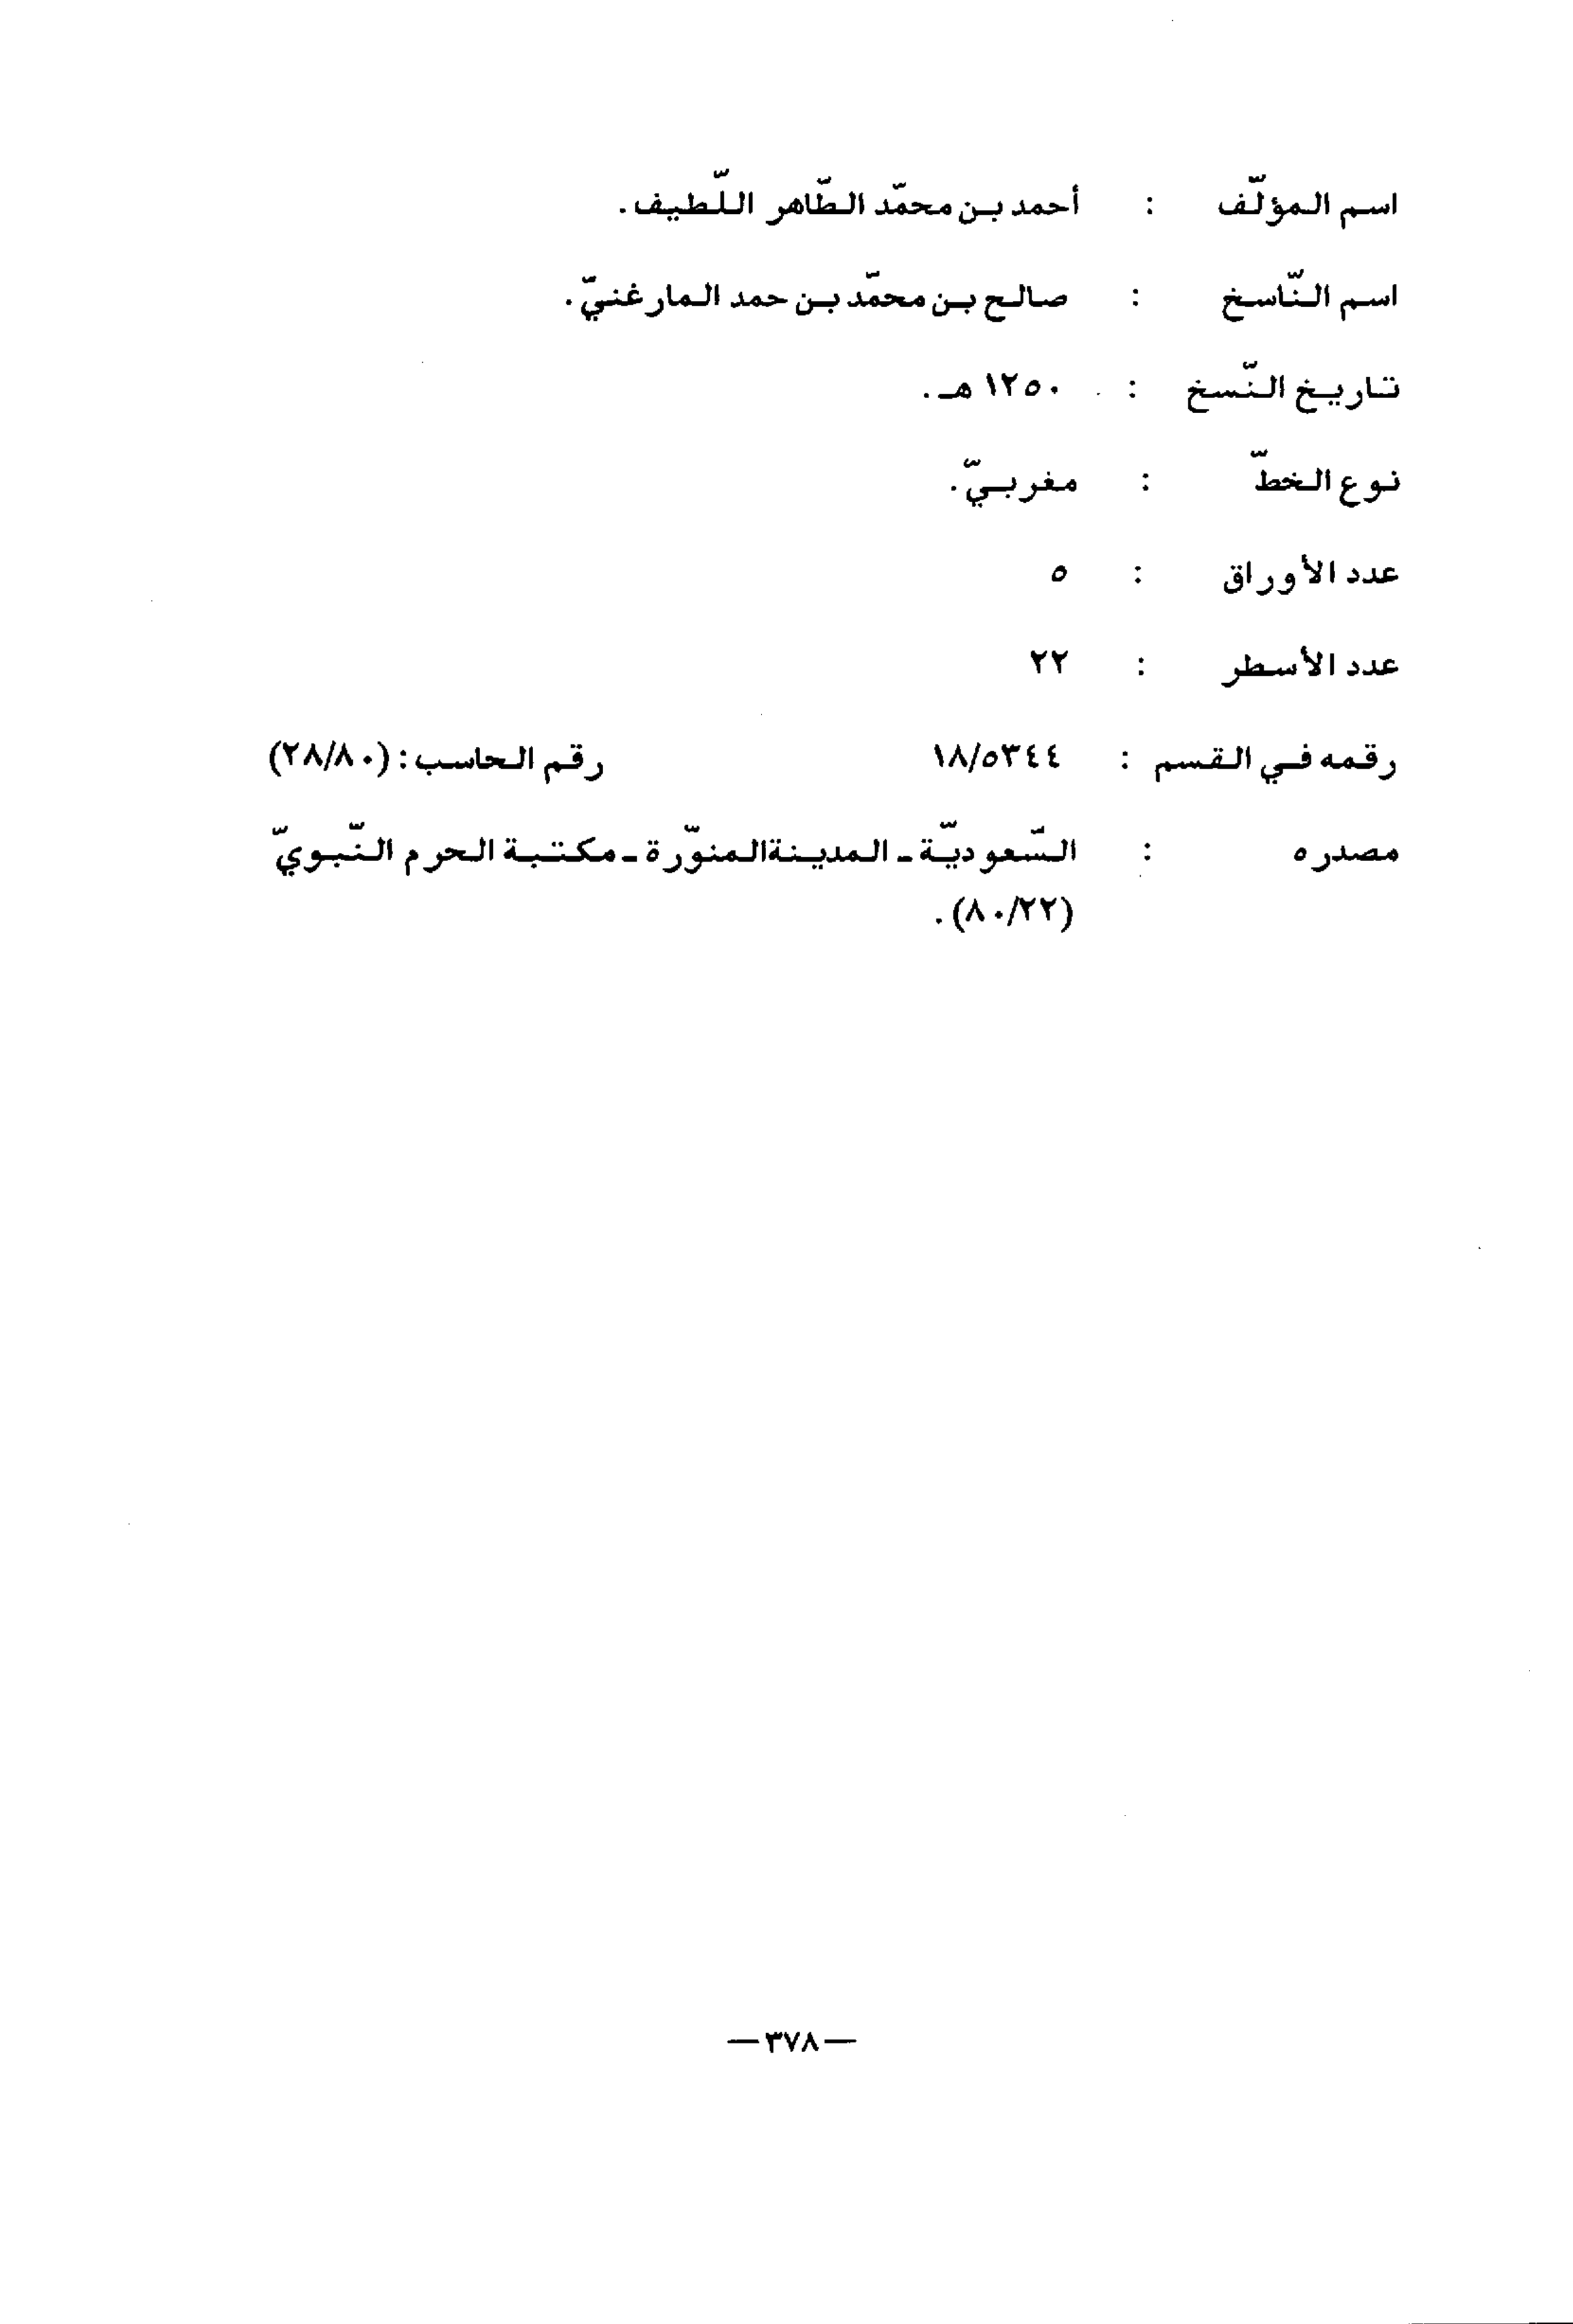 اسم المؤلّف : أحمد بن محمّد الطّاهر اللّطيف.
اسم النّاسخ : صالح بن محمّد بن حمد المارغنيّ.
تاريخ النّسخ : ١٢٥٠ هـ.
نوع الخطّ : مغربيّ.
عدد الأوراق : ٥
عدد الأسطر : ٢٢
رقمه في القسم : ١٨/٥٣٤٤ رقم الحاسب: (٢٨/٨٠)
مصدره : السّعوديّة - المدينة المنوّرة - مكتبة الحرم النّبويّ
(٨٠/٢٢).
—٣٧٨—